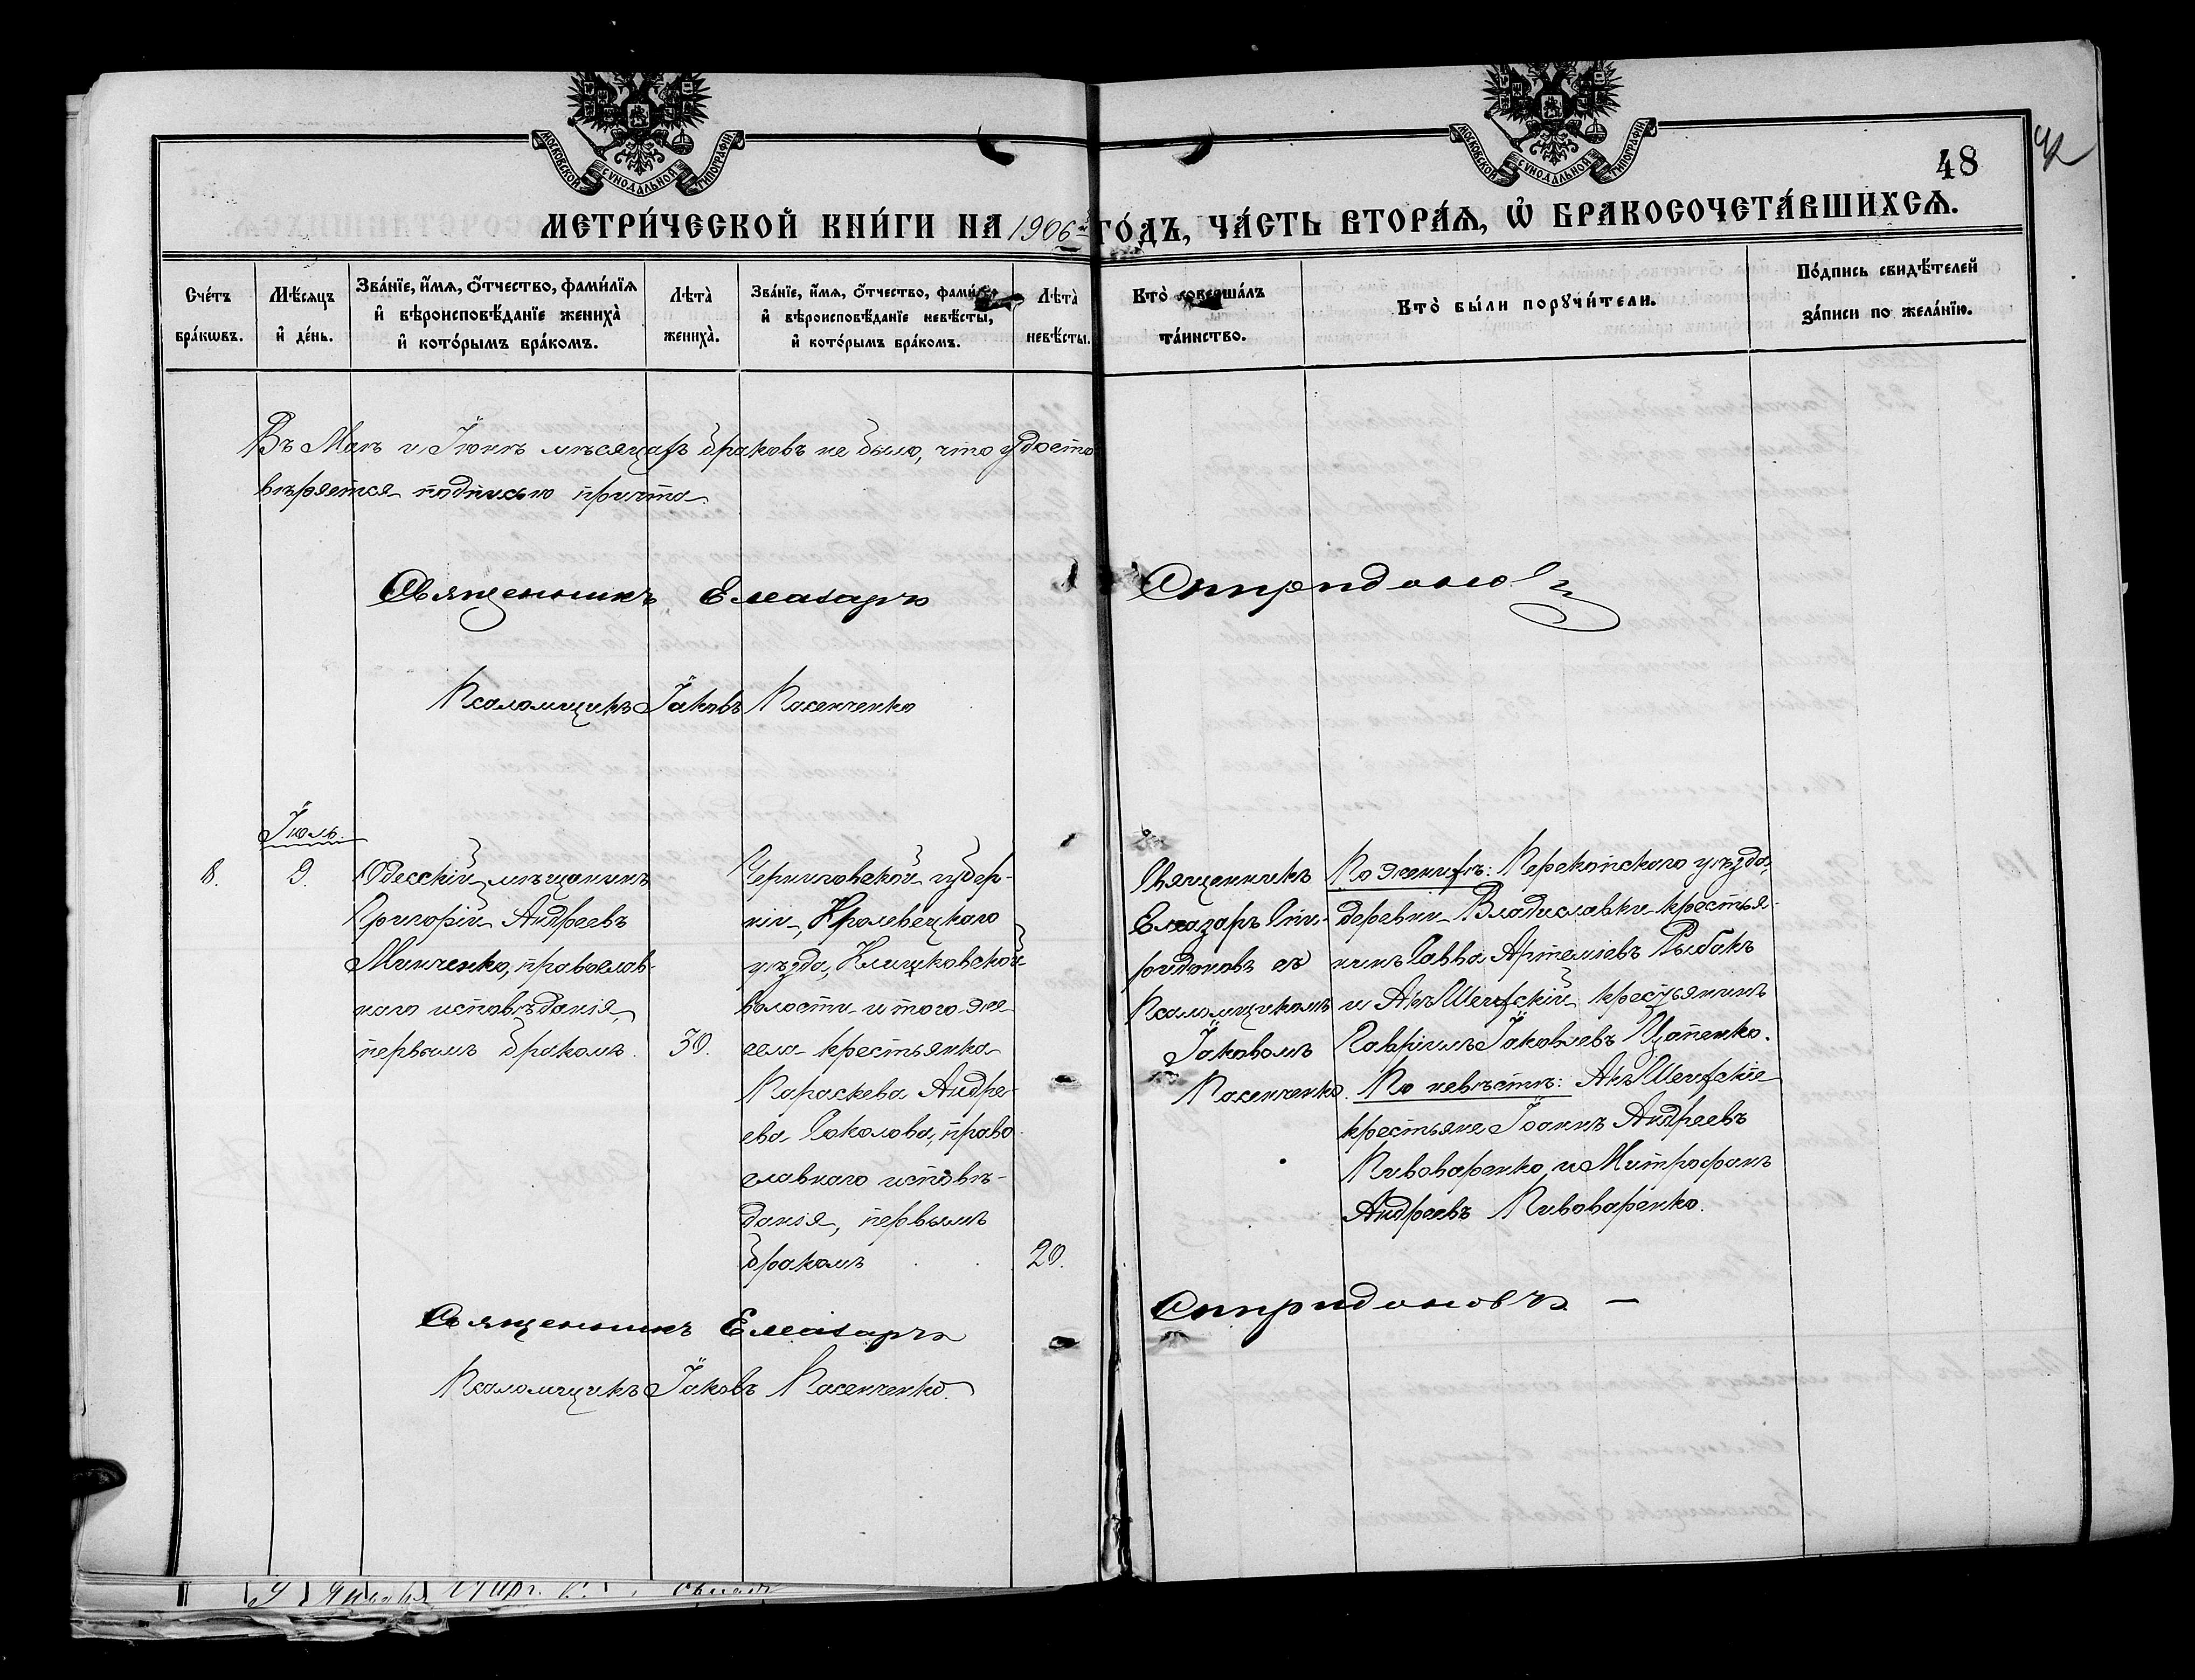 МОСКОВСКОЙ СѴНОДАЛЬНОЙ ТИПОГРАФІИ
МОСКОВСКОЙ СѴНОДАЛЬНОЙ ТИПОГРАФІИ
48
МЕТРИ́ЧЕСКОЙ КНИ́ГИ НА 1906й ГО́ДЪ, ЧА́СТЬ ВТОРА́Ѧ, Ѡ҆ БРАКОСОЧЕТА́ВШИХСѦ.
Сче́тъ бра́кѡвъ.
Мѣ́сѧцъ и҆ де́нь.
Зва́нїе, и҆́мѧ, ѻ҆́тчество, фами́лїѧ
и҆ вѣроисповѣ́данїе жениха̀
и҆ кото́рымъ бра́комъ.
Лѣта̀ жениха̀.
Зва́нїе, и҆́мѧ, ѻ҆́тчество, фами́лїѧ
и҆ вѣроисповѣ́данїе невѣ́сты,
и҆ кото́рымъ бра́комъ.
Лѣта̀ невѣ́сты.
Кто̀ соверша́лъ
та́инство.
Кто̀ бы́ли порꙋчи́тели.
По́дпись свидѣ́телей
за́писи по жела́нїю.
Въ Маѣ и Іюнѣ мѣсяцахъ браковъ не было, что удосто
вѣряется подписью причта.
Священникъ Елеазаръ Спиридоновъ
Псаломщикъ Іаковъ Пасенченко
Іюль.
8.
9.
Одесскій мѣщанинъ
Григорій Андреевъ
Минченко, православ-
наго исповѣданія,
первымъ бракомъ.
30.
Черниговской губер-
ніи, Кролевецкаго
уѣзда, Клишковской
волости и того-же
села крестьянка
Параскева Андре-
ева Соколова, право
славнаго исповѣ-
данія, первымъ
бракомъ
20.
Священникъ
Елеазаръ Спи-
ридоновъ съ
Псаломщикомъ
Іаковомъ
Пасенченко.
По женихѣ: Перекопскаго уѣзда,
деревни Владиславки крестья-
нинъ Савва Артеміевъ Рыбакъ
и АкъШеихскій крестьянинъ
Гавріилъ Іаковлевъ Цапенко.
По невѣстѣ: АкъШеихскіе
крестьяне Іоаннъ Андреевъ
Пивоваренко, и Митрофанъ
Андреевъ Пивоваренко.
Священникъ Елеазаръ Спиридоновъ —
Псаломщикъ Іаковъ Пасенченко.